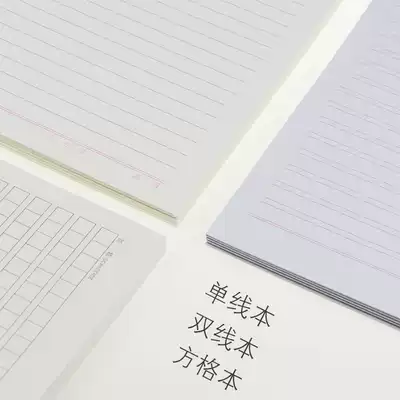 单线本
双线本
方格本